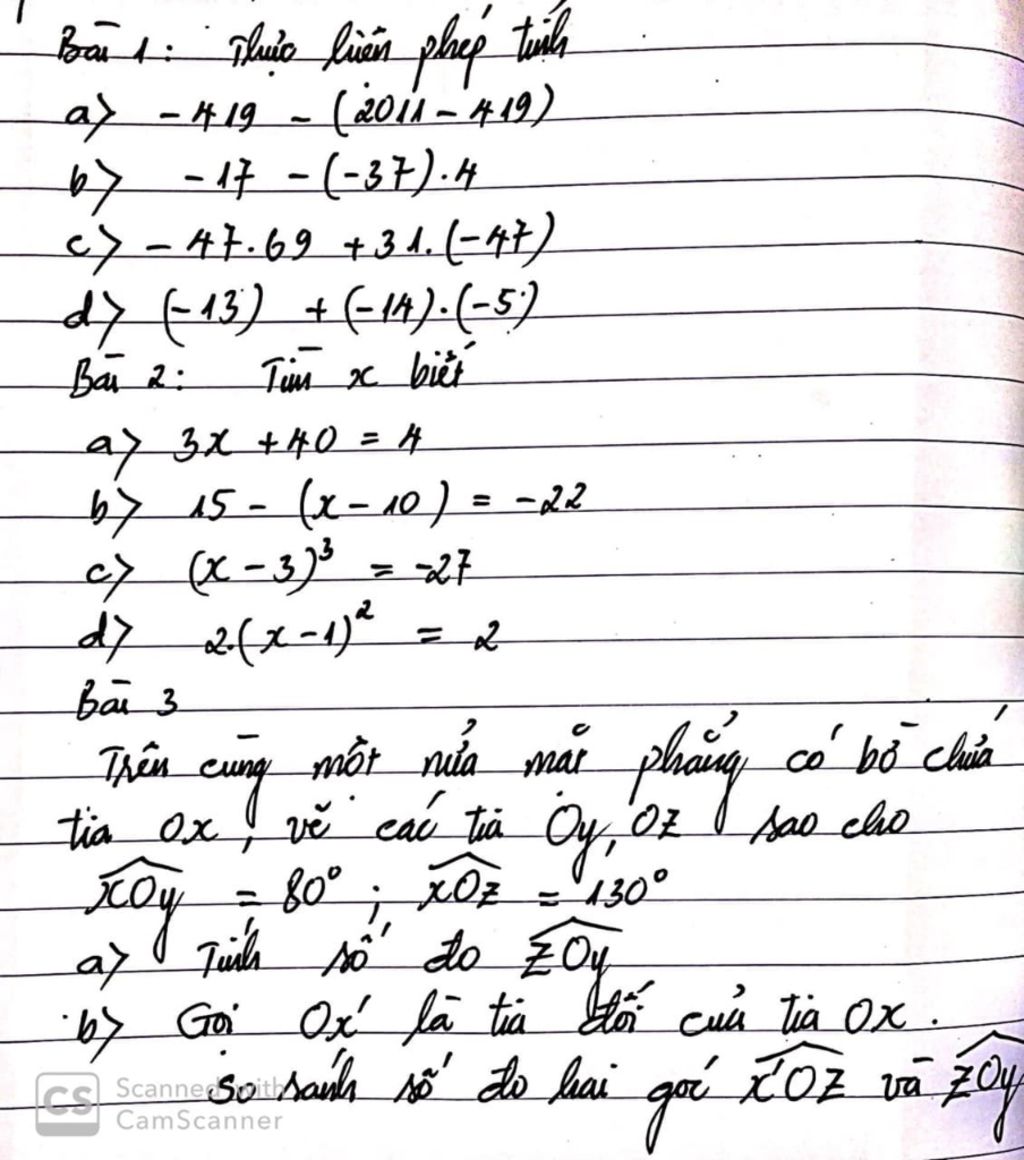 Bài 1: Thực hiện phép tính
a) -419 - (2011 - 419)
b) -17 - (-37).4
c) -47.69 + 31.(-47)
d) (-13) + (-14).(-5)
Bài 2: Tìm x biết
a) 3x + 40 = 4
b) 15 - (x - 10) = -22
c) (x - 3)³ = -27
d) 2.(x - 1)² = 2
Bài 3
Trên cùng một nửa mặt phẳng có bờ chứa
tia Ox, vẽ các tia Oy, Oz sao cho
xOy = 80° ; xOz = 130°
a) Tính số đo zOy
b) Gọi Ox' là tia đối của tia Ox.
So sánh số đo hai góc x'Oz và zOy
CS Scanned with
CamScanner